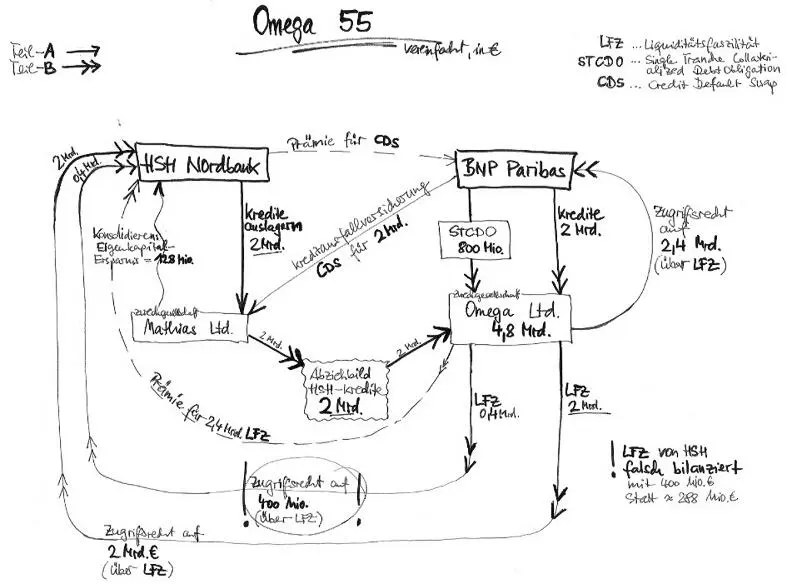 Omega 55
vereinfacht, in €
Teil-A
Teil-B
LFZ ... Liquiditätsfaszilität
STCDO ... Single Tranche Collater-
alized Debt Obligation
CDS ... Credit Default Swap
2 Mrd.
0,4 Mrd.
HSH Nordbank
Prämie für CDS
BNP Paribas
Konsolidieren:
Eigenkapital-
Ersparnis = 128 Mio.
Kredite
auslagern
2 Mrd.
Kreditausfallversicherung
CDS für 2 Mrd.
STCDO
800 Mio.
Kredite
2 Mrd.
Zugriffsrecht
auf
2,4 Mrd.
(über LFZ)
Zweckgesellschaft
Mathias Ltd.
Zweckgesellschaft
Omega Ltd.
4,8 Mrd.
2 Mrd.
Abziehbild
HSH-Kredite
2 Mrd.
2 Mrd.
Prämie für 2,4 Mrd. LFZ
LFZ
0,4 Mrd.
LFZ
2 Mrd.
! LFZ von HSH
falsch bilanziert
mit 400 Mio. €
statt ≈ 288 Mio. €
! Zugriffsrecht auf !
400 Mio.
(über LFZ)
Zugriffsrecht auf
2 Mrd. €
(über LFZ)